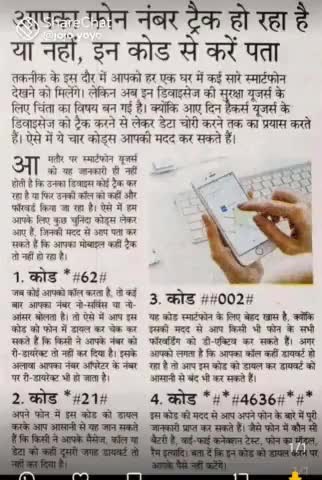 आपका फोन नंबर ट्रैक हो रहा है
ShareChat
@jojo_yoyo
या नहीं, इन कोड से करें पता
तकनीक के इस दौर में आपको हर एक घर में कई सारे स्मार्टफोन
देखने को मिलेंगे। लेकिन अब इन डिवाइसेज की सुरक्षा यूजर्स के
लिए चिंता का विषय बन गई है। क्योंकि आए दिन हैकर्स यूजर्स के
डिवाइसेज को ट्रैक करने से लेकर डेटा चोरी करने तक का प्रयास करते
हैं। ऐसे में ये चार कोड्स आपकी मदद कर सकते हैं।
आ मतौर पर स्मार्टफोन यूजर्स
को यह जानकारी ही नहीं
होती है कि उनका डिवाइस कोई ट्रैक कर
रहा है या फिर उनकी कॉल को कहीं और
फॉरवर्ड किया जा रहा है। ऐसे में हम
आपके लिए कुछ चुनिंदा कोड्स लेकर
आए हैं, जिनकी मदद से आप पता कर
सकते हैं कि आपका मोबाइल कहीं ट्रैक
तो नहीं हो रहा है।
1. कोड *#62#
जब कोई आपको कॉल करता है, तो कई
बार आपका नंबर नो-सर्विस या नो-
आंसर बोलता है। तो ऐसे में आप इस
कोड को फोन में डायल कर चेक कर
सकते हैं कि किसी ने आपके नंबर को
री-डायरेक्ट तो नहीं कर दिया है। इसके
अलावा आपका नंबर ऑपरेटर के नंबर
पर री-डायरेक्ट भी हो जाता है।
2. कोड *#21#
अपने फोन में इस कोड को डायल
करके आप आसानी से यह जान सकते
हैं कि किसी ने आपके मैसेज, कॉल या
डेटा को कहीं दूसरी जगह डायवर्ट तो
नहीं कर दिया है।
3. कोड ##002#
यह कोड स्मार्टफोन के लिए बेहद खास है, क्योंकि
इसकी मदद से आप किसी भी फोन के सभी
फॉरवर्डिंग को डी-एक्टिव कर सकते हैं। अगर
आपको लगता है कि आपका कॉल कहीं डायवर्ट हो
रहा है तो आप इस कोड को डायल कर डायवर्ट को
आसानी से बंद भी कर सकते हैं।
4. कोड *#*#4636#*#*
इस कोड की मदद से आप अपने फोन के बारे में पूरी
जानकारी प्राप्त कर सकते हैं। जैसे फोन में कौन सी
बैटरी है, वाई-फाई कनेक्शन टेस्ट, फोन का मॉडल,
रैम इत्यादि। बता दें कि इन कोड को डायल करने पर
आपके पैसे नहीं कटेंगे।
1/1